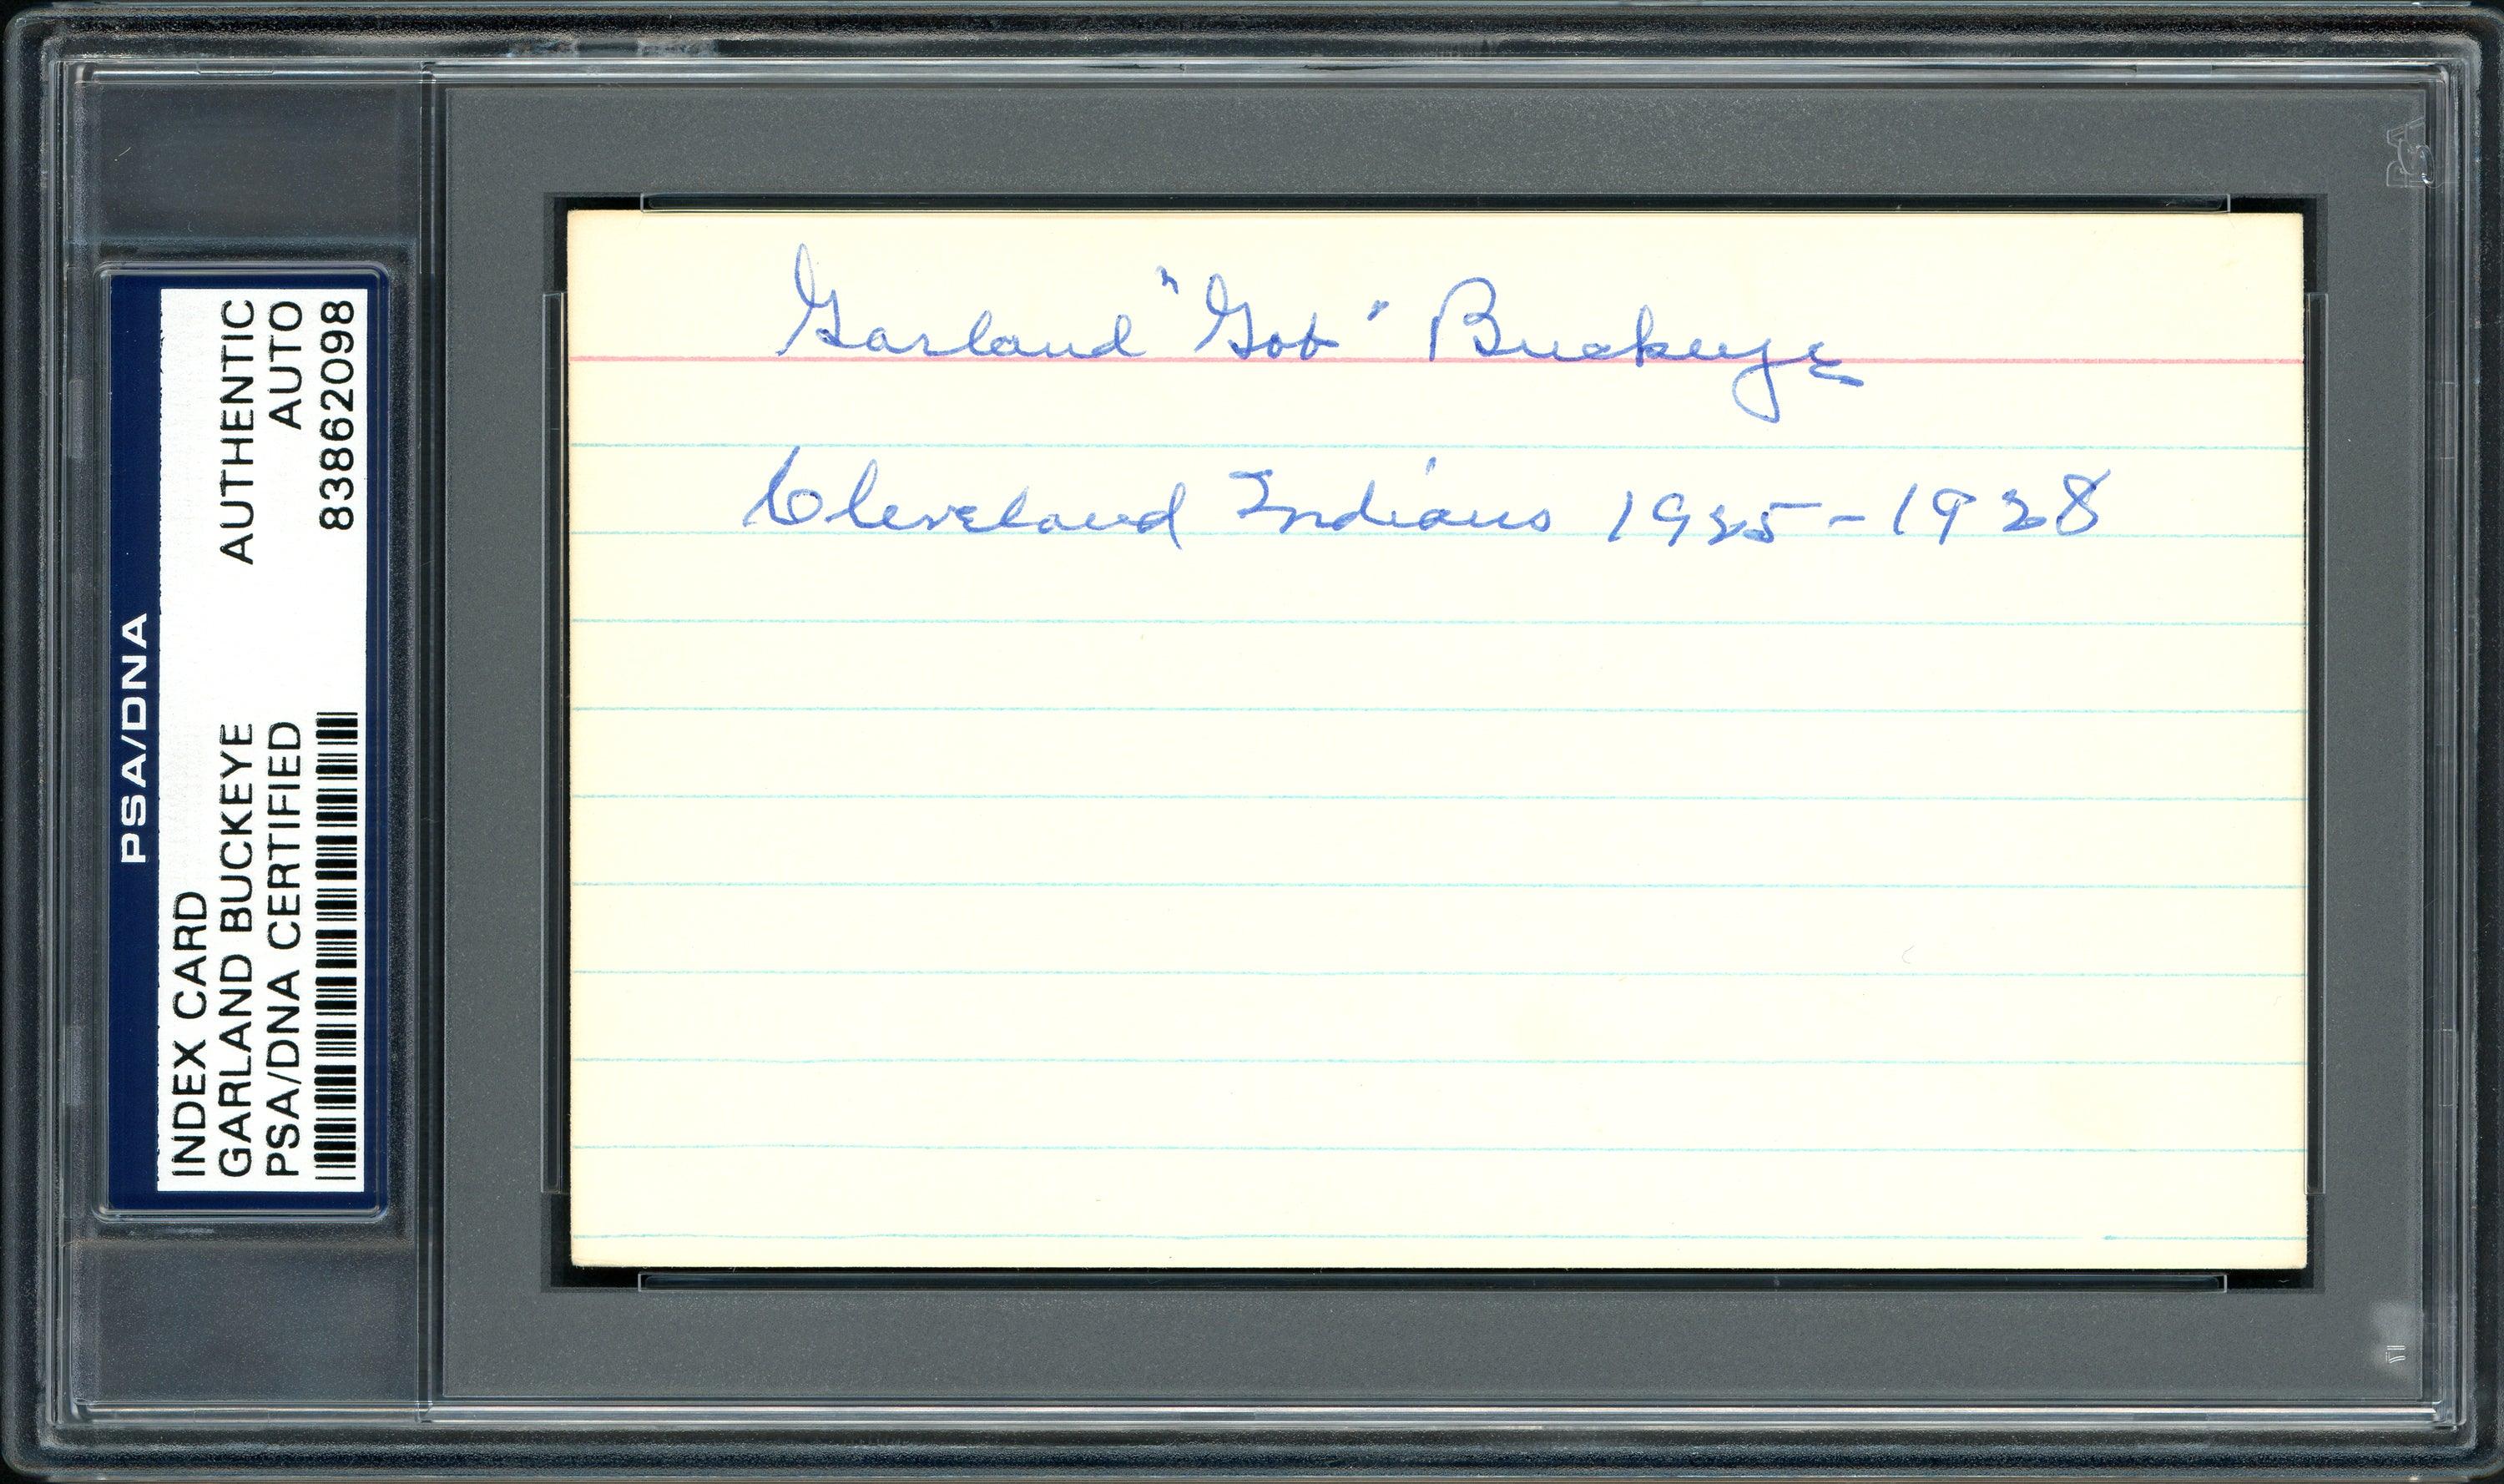 PSA/DNA
INDEX CARD
GARLAND BUCKEYE
PSA/DNA CERTIFIED
AUTHENTIC
AUTO
83862098
Garland "Gob" Buckeye
Cleveland Indians 1925-1928
PSA